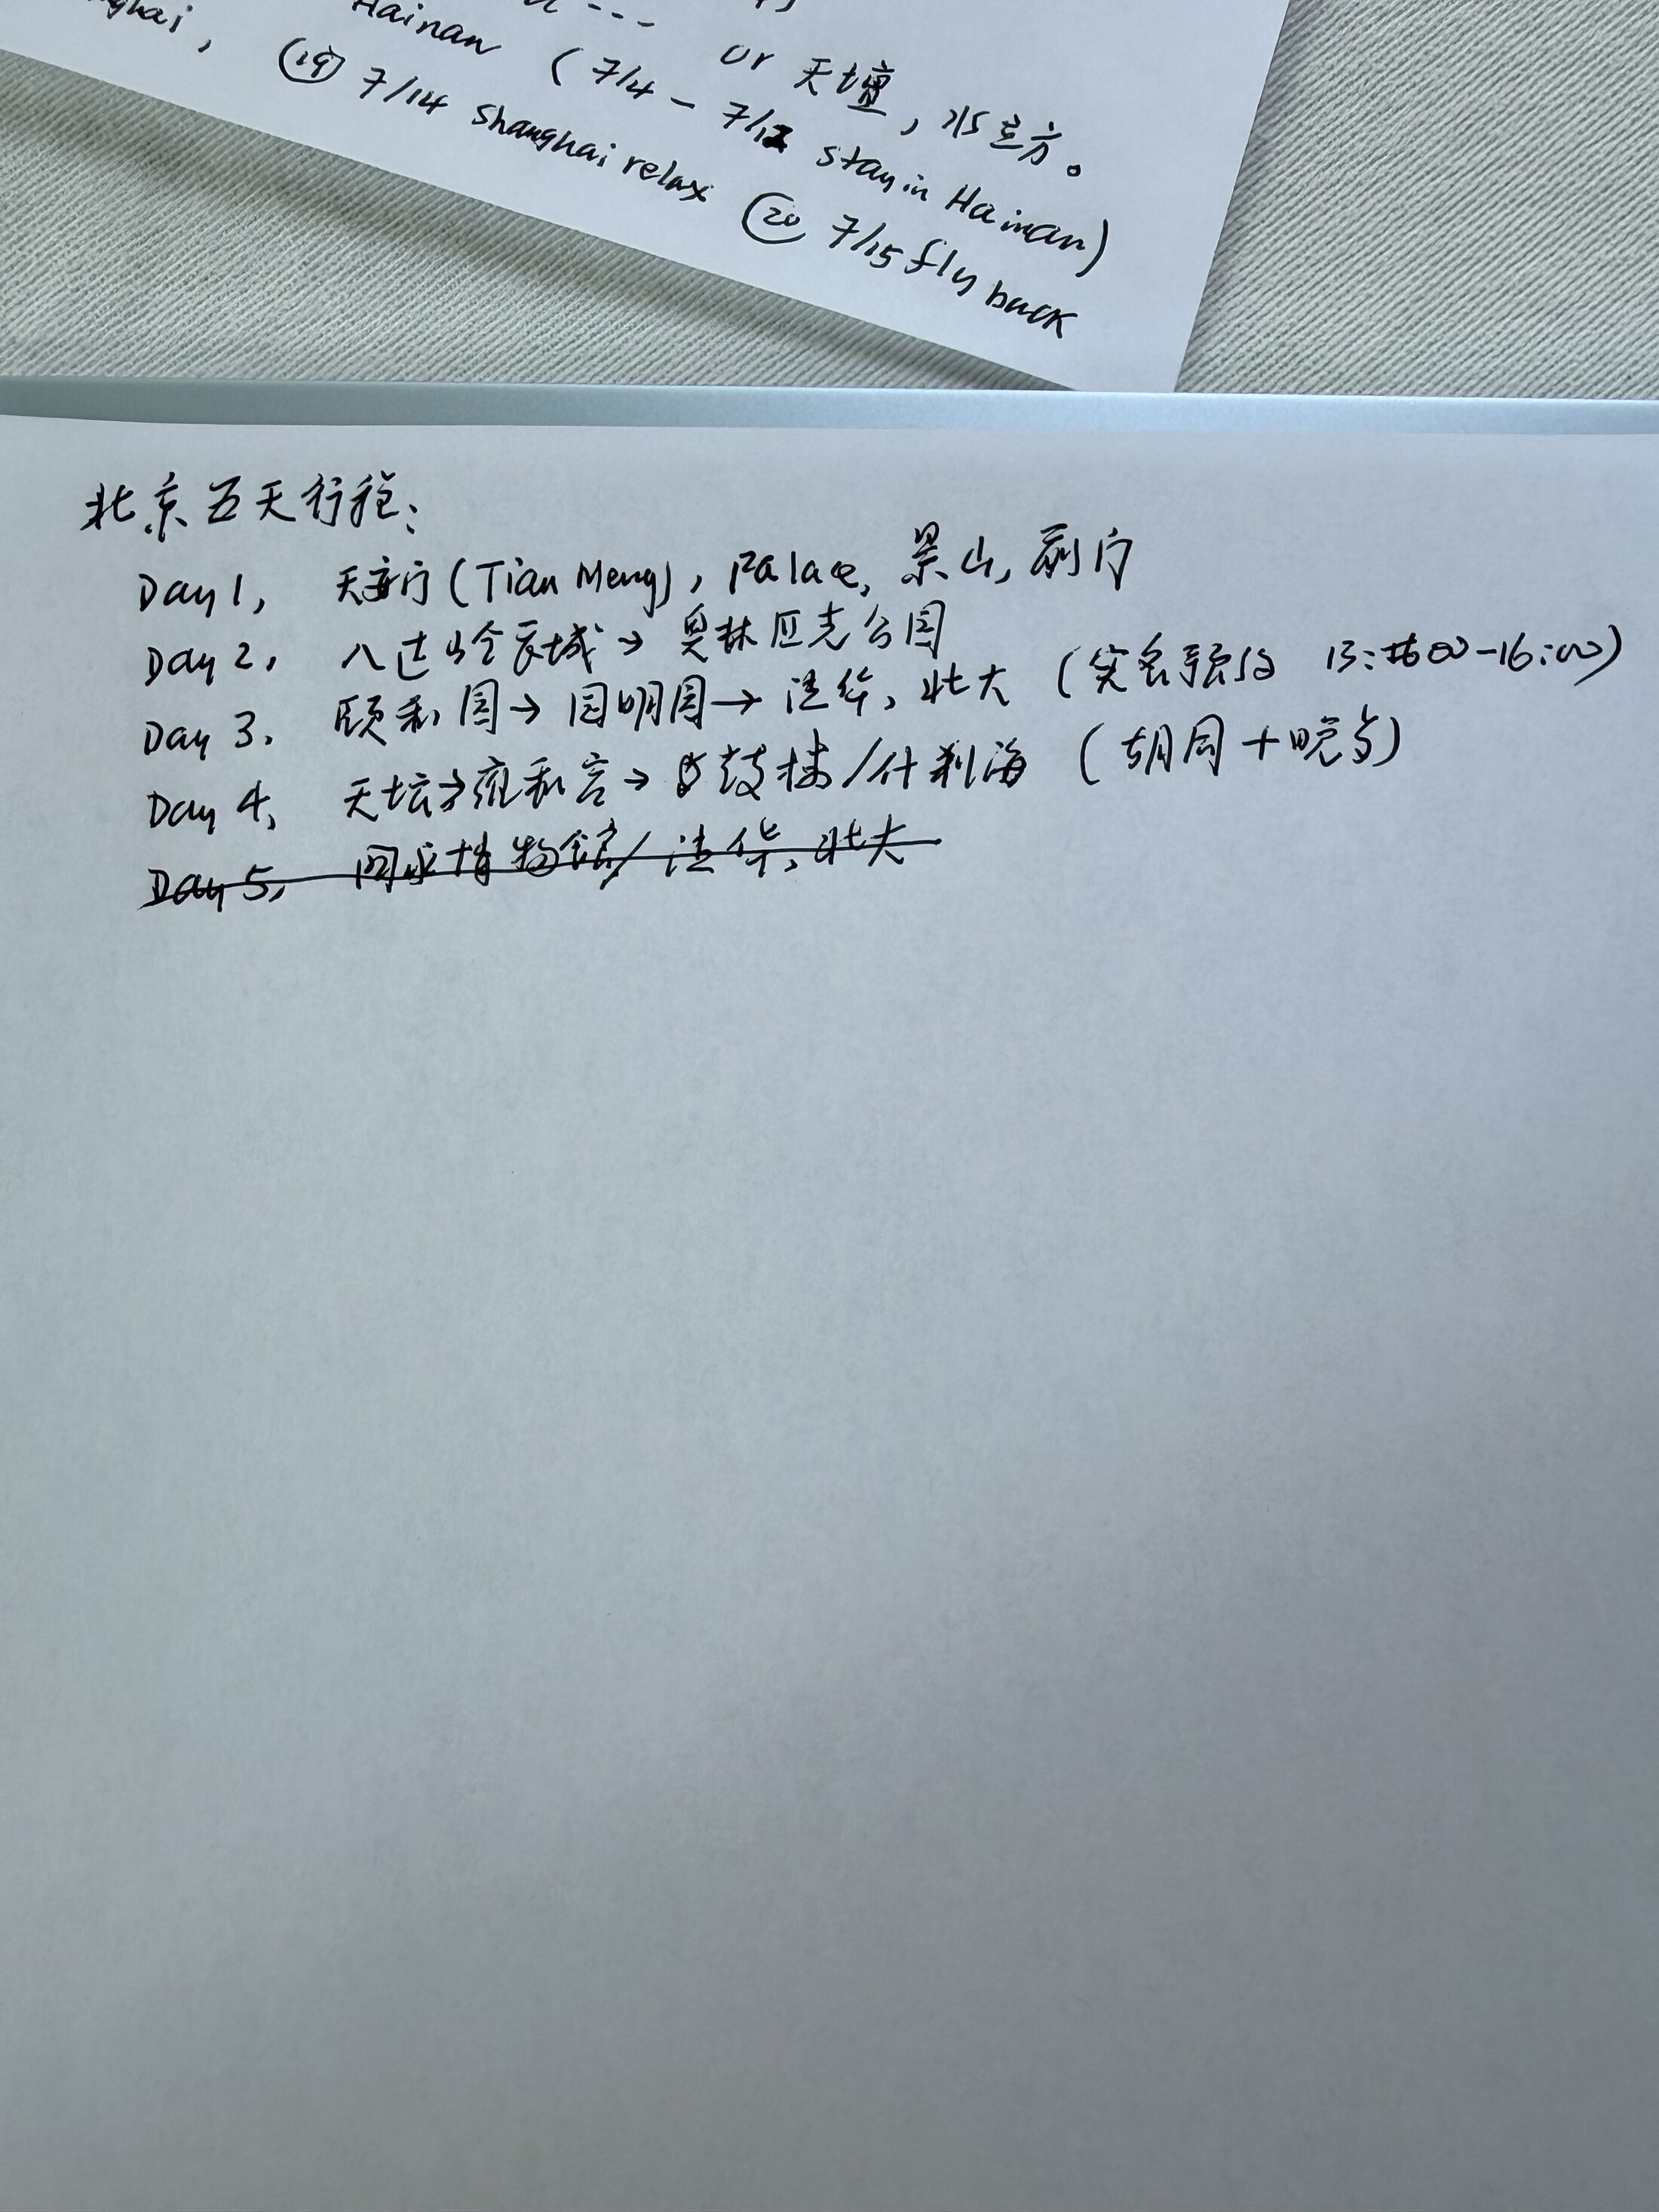 Hainan or 天壇，水立方。
(7/4 - 7/12 stay in Hainan)
⑲ 7/14 Shanghai relax ⑳ 7/15 fly back
北京五天行程:
Day 1, 天安门 (Tian Meng), Palace, 景山, 前门
Day 2, 八达岭长城 → 奥林匹克公园
Day 3. 颐和园 → 圆明园 → 清华, 北大 (实名预约 13:00-16:00)
Day 4, 天坛 → 雍和宫 → 鼓楼/什刹海 (胡同+晚步)
Day 5, 国家博物馆/清华, 北大